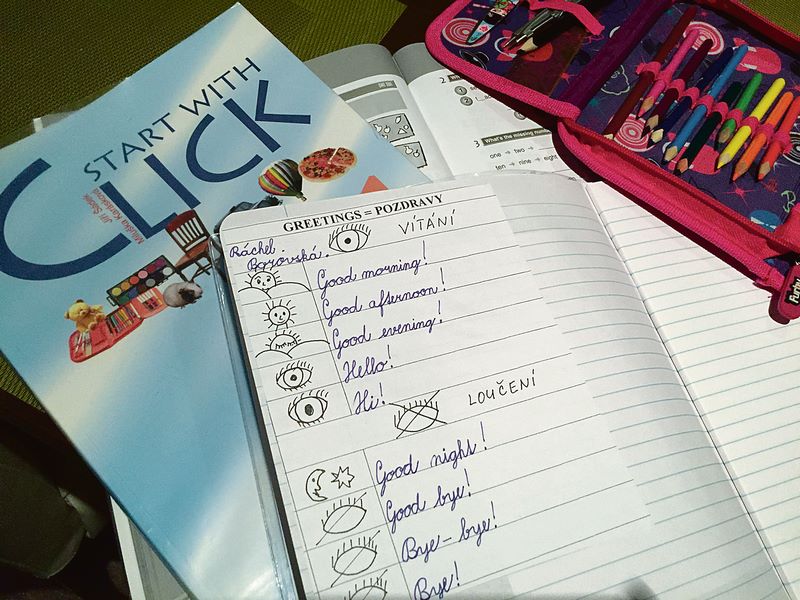 START WITH
CLICK
Jiří Šádek
GREETINGS = POZDRAVY
Ráchel
Borovská.
VÍTÁNÍ
Good morning!
Good afternoon!
Good evening!
Hello!
Hi!
LOUČENÍ
Good night!
Good bye!
Bye-bye!
Bye!
2
1
2
3 What's the missing num
one → two →
ten → nine → eight